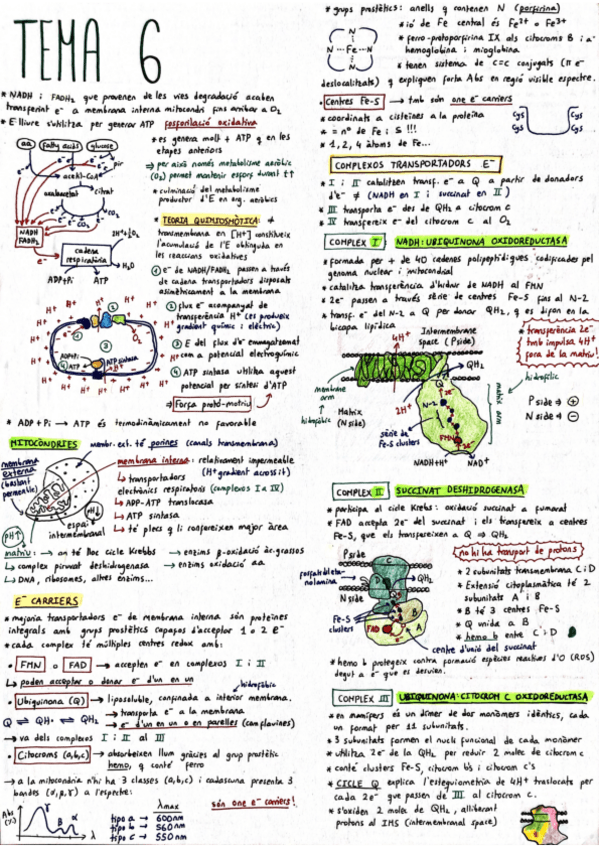 TEMA 6
* NADH i FADH₂ que provenen de les vies degradació acaben
transferint e⁻ a membrana interna mitocondri fins arribar a O₂
* E lliure s'utilitza per generar ATP fosforilació oxidativa
aa
Fatty acids
glucose
pir
acetil-CoA
oxalacetat
citrat
e⁻
CO₂
NADH
FADH₂
e⁻
cadena
respiratòria
2H⁺+½O₂
H₂O
ADP+Pi
ATP
* es genera molt + ATP q en les
etapes anteriors
⇒ per això només metabolisme aeròbic
(O₂) permet mantenir esforç durant t↑
* culminació del metabolisme
productor d'E en org. aeròbics
TEORIA QUIMIOSMÒTICA: ≠
transmembrana en [H⁺] constitueix
l'acumulació de l'E obtinguda en
les reaccions oxidatives
① e⁻ de NADH/FADH₂ passen a través
de cadena transportadors disposats
asimètricament a la membrana
② flux e⁻ acompanyat de
transferència H⁺ (es produeix
gradient químic i elèctric)
③ E del flux d'e⁻ emmagatzemat
com a potencial electroquímic
④ ATP sintasa utilitza aquest
potencial per síntesi d'ATP
⇒ Força protó-motriu
H⁺
ADP+Pi
ATP
ATP sintasa
O₂
* ADP + Pi → ATP és termodinàmicament no favorable
MITOCÒNDRIES
membr. ext. té porines (canals transmembrana)
membrana
externa
(bastant
permeable)
pH↑
pH↓
espai
intermembranal
membrana interna: relativament impermeable
(H⁺ gradient across it)
↳ transportadors
electrònics respiratoris (complexos I a IV)
↳ ADP-ATP translocasa
↳ ATP sintasa
↳ té plecs q li confereixen major àrea
matriu: → on té lloc cicle Krebbs
→ enzims β-oxidació àc. grassos
↳ complex piruvat deshidrogenasa
→ enzims oxidació aa
↳ DNA, ribosomes, altres enzims...
E⁻ CARRIERS
* majoria transportadors e⁻ de membrana interna són proteïnes
integrals amb grups prostètics capaços d'acceptar 1 o 2 e⁻
* cada complex té múltiples centres redox amb:
• FMN o FAD → accepten e⁻ en complexos I i II
↳ poden acceptar o donar e⁻ d'un en un
hidrofòbic
• Ubiquinona (Q) → liposoluble, confinada a interior membrana.
→ transporta e⁻ a la membrana
Q ⇌ QH• ⇌ QH₂
→ e⁻ d'en un en un o en parelles (com flavines)
→ va dels complexos I i II al III
• Citocroms (a,b,c) → absorbeixen llum gràcies al grup prostètic
hemo, q conté ferro
→ a la mitocòndria n'hi ha 3 classes (a,b,c) i cadascuna presenta 3
bandes (α,β,γ) a l'espectre:
són one e⁻ carriers!
Abs
(%)
γ
β
α
λ
λmax
tipo a → 600nm
tipo b → 560nm
tipo c → 550nm
* grups prostètics: anells q contenen N (porfirina)
N
N···Fe···N
N
* ió de Fe central és Fe²⁺ o Fe³⁺
* ferro-protoporfirina IX als citocroms B i a
hemoglobina i mioglobina
* tenen sistema de c=c conjugats (π e⁻
deslocalitzats) q expliquen forta Abs en regió visible espectre.
• Centres Fe-S → tmb són one e⁻ carriers
* coordinats a cisteïnes a la proteïna
* = nº de Fe i S !!!
* 1, 2, 4 àtoms de Fe...
Cys
Cys
Cys
Cys
COMPLEXOS TRANSPORTADORS E⁻
* I i II catalitzen transf. e⁻ a Q a partir de donadors
d'e⁻ ≠ (NADH en I i succinat en II)
* III transporta e⁻ des de QH₂ a citocrom c
* IV transfereix e⁻ del citocrom c al O₂
COMPLEX I: NADH:UBIQUINONA OXIDOREDUCTASA
* formada per + de 40 cadenes polipeptídiques codificades pel
genoma nuclear i mitocondrial
* catalitza transferència d'hidrur de NADH al FMN
* 2e⁻ passen a través sèrie de centres Fe-S fins al N-2
* transf. e⁻ del N-2 a Q per donar QH₂, q es difon en la
bicapa lipídica
* transferència 2e⁻
tmb impulsa 4H⁺
fora de la matriu!
Intermembrane
space (Pside)
4H⁺
QH₂
Q
hidrofílic
membrane
arm
hidrofòbic
Matrix
(Nside)
2H⁺
N-2
2e⁻
matrix
arm
sèrie de
Fe-S clusters
FMN
NADH+H⁺
NAD⁺
Pside → ⊕
Nside → ⊖
COMPLEX II: SUCCINAT DESHIDROGENASA
* participa al cicle Krebs: oxidació succinat a fumarat
* FAD accepta 2e⁻ del succinat i els transfereix a centres
Fe-S, que els transfereixen a Q ⇒ QH₂
no hi ha transport de protons
Pside
fosfatidileta-
nolamina
Nside
QH₂
Fe-S
clusters
FAD
B
A
centre d'unió del succinat
* 2 subunitats transmembrana C i D
* Extensió citoplasmàtica té 2
subunitats A i B
* B té 3 centres Fe-S
* Q unida a B
* hemo b entre C i D
* hemo b protegeix contra formació espècies reactives d'O (ROS)
degut a e⁻ que es desvien.
COMPLEX III: UBIQUINONA:CITOCROM C OXIDOREDUCTASA
* en mamífers és un dímer de dos monòmers idèntics, cada
un format per 11 subunitats.
* 3 subunitats formen el nucli funcional de cada monòmer
* utilitza 2e⁻ de la QH₂ per reduir 2 molèc de citocrom c
* conté clústers Fe-S, citocrom b's i citocrom c's
* CICLE Q explica l'estequiometria de 4H⁺ traslocats per
cada 2e⁻ que passen de III al citocrom c.
* s'oxiden 2 molèc de QH₂, alliberant
protons al IMS (intermembranal space)